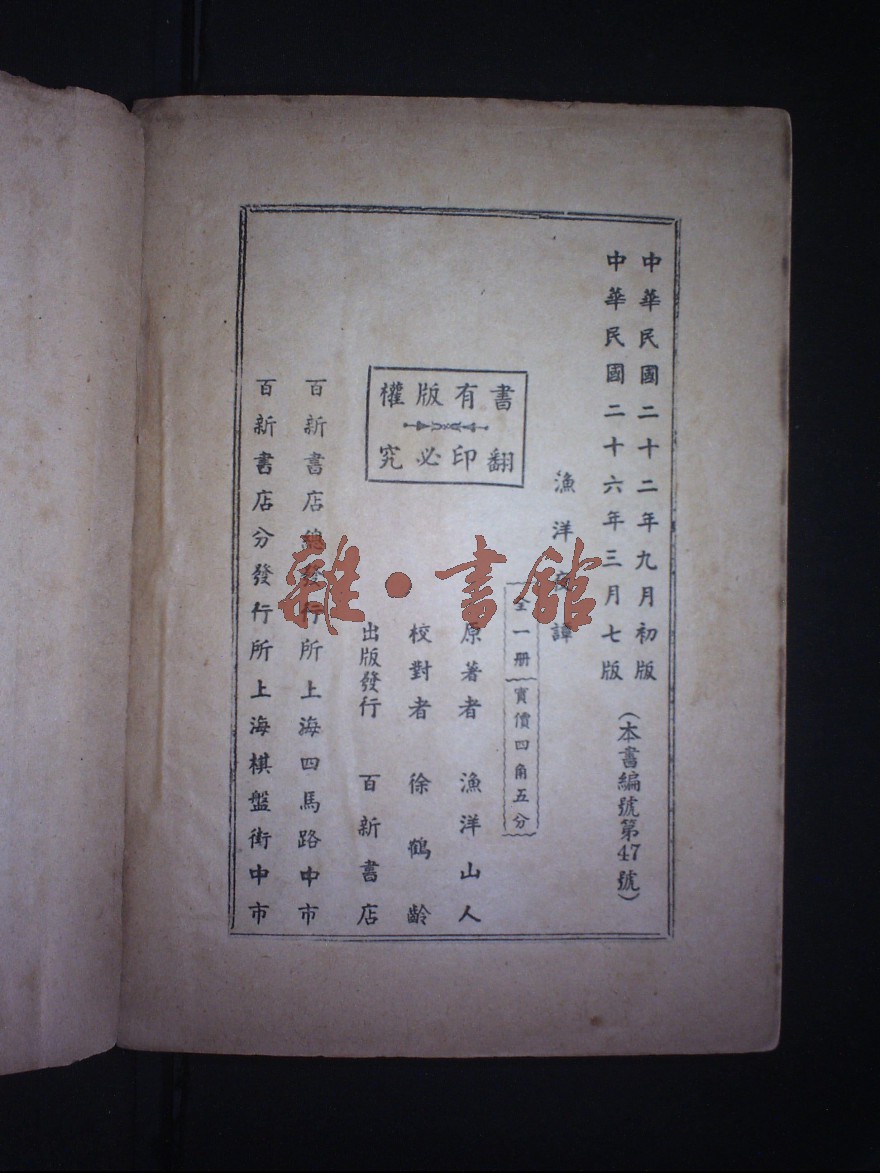 中華民國二十二年九月初版
中華民國二十六年三月七版
(本書編號第47號)
漁洋夜譚
全一册
實價四角五分
原著者 漁洋山人
校對者 徐鶴齡
出版發行 百新書店
書有版權
翻印必究
百新書店總發行所上海四馬路中市
百新書店分發行所上海棋盤街中市
雜·書館